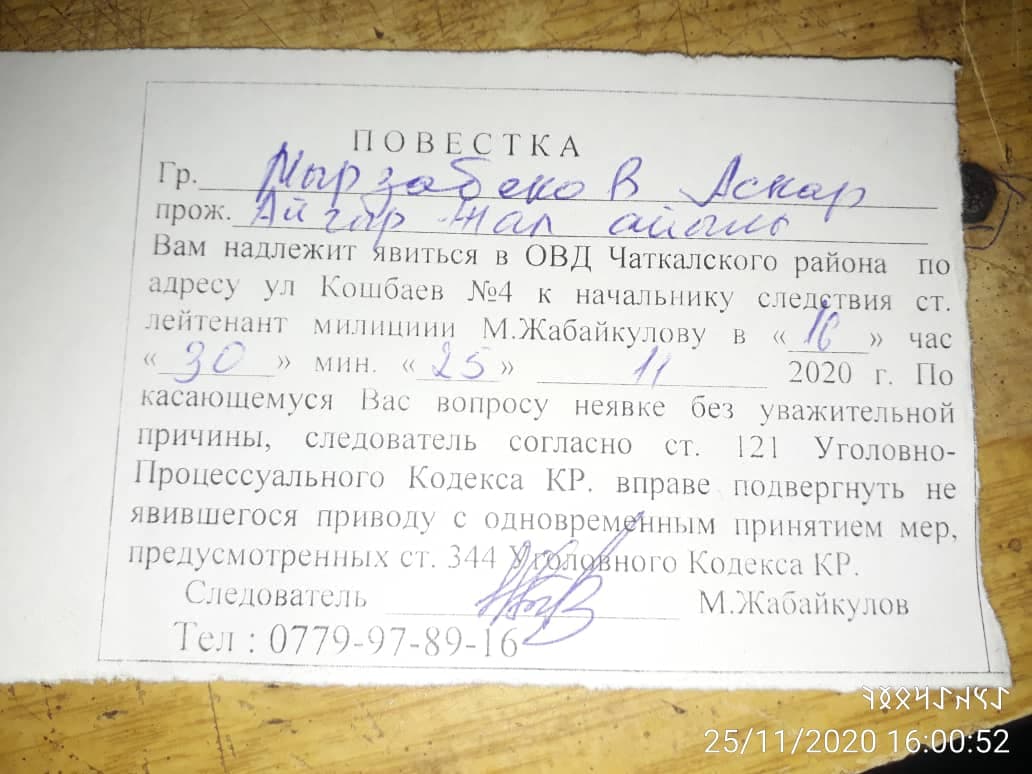 ПОВЕСТКА
Гр. Мырзабеков Аскар
прож. Айгыр Жал айылы
Вам надлежит явиться в ОВД Чаткалского района по
адресу ул Кошбаев №4 к начальнику следствия ст.
лейтенант милициии М.Жабайкулову в «16» час
«30» мин. «25» 11 2020 г. По
касающемуся Вас вопросу неявке без уважительной
причины, следователь согласно ст. 121 Уголовно-
Процессуального Кодекса КР. вправе подвергнуть не
явившегося приводу с одновременным принятием мер,
предусмотренных ст. 344 Уголовного Кодекса КР.
Следователь М.Жабайкулов
Тел : 0779-97-89-16
25/11/2020 16:00:52